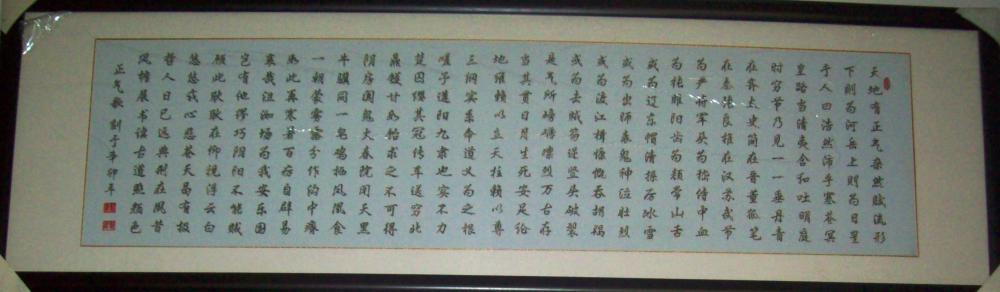 天地有正气杂然赋流形
下則为河岳上則为日星
于人曰浩然沛乎塞苍冥
皇路当清夷含和吐明庭
时穷节乃见一一垂丹青
在齐太史简在晋董狐笔
在秦张良椎在汉苏武节
为严将军头为嵇侍中血
为张睢阳齿为颜常山舌
或为辽东帽清操厉冰雪
或为出师表鬼神泣壮烈
或为渡江楫慷慨吞胡羯
或为击贼笏逆竖头破裂
是气所磅礴凛烈万古存
当其贯日月生死安足论
地维赖以立天柱赖以尊
三纲实系命道义为之根
嗟予遘阳九隶也实不力
楚囚缨其冠传车送穷北
鼎镬甘如饴求之不可得
阴房阗鬼火春院闭天黑
牛骥同一皂鸡栖凤凰食
一朝蒙雾露分作沟中瘠
如此再寒暑百疠自辟易
哀哉沮洳场为我安乐国
岂有他缪巧阴阳不能贼
顾此耿耿在仰视浮云白
悠悠我心悲苍天曷有极
哲人日已远典刑在夙昔
风檐展书读古道照颜色
正气歌 刘于辛卯年